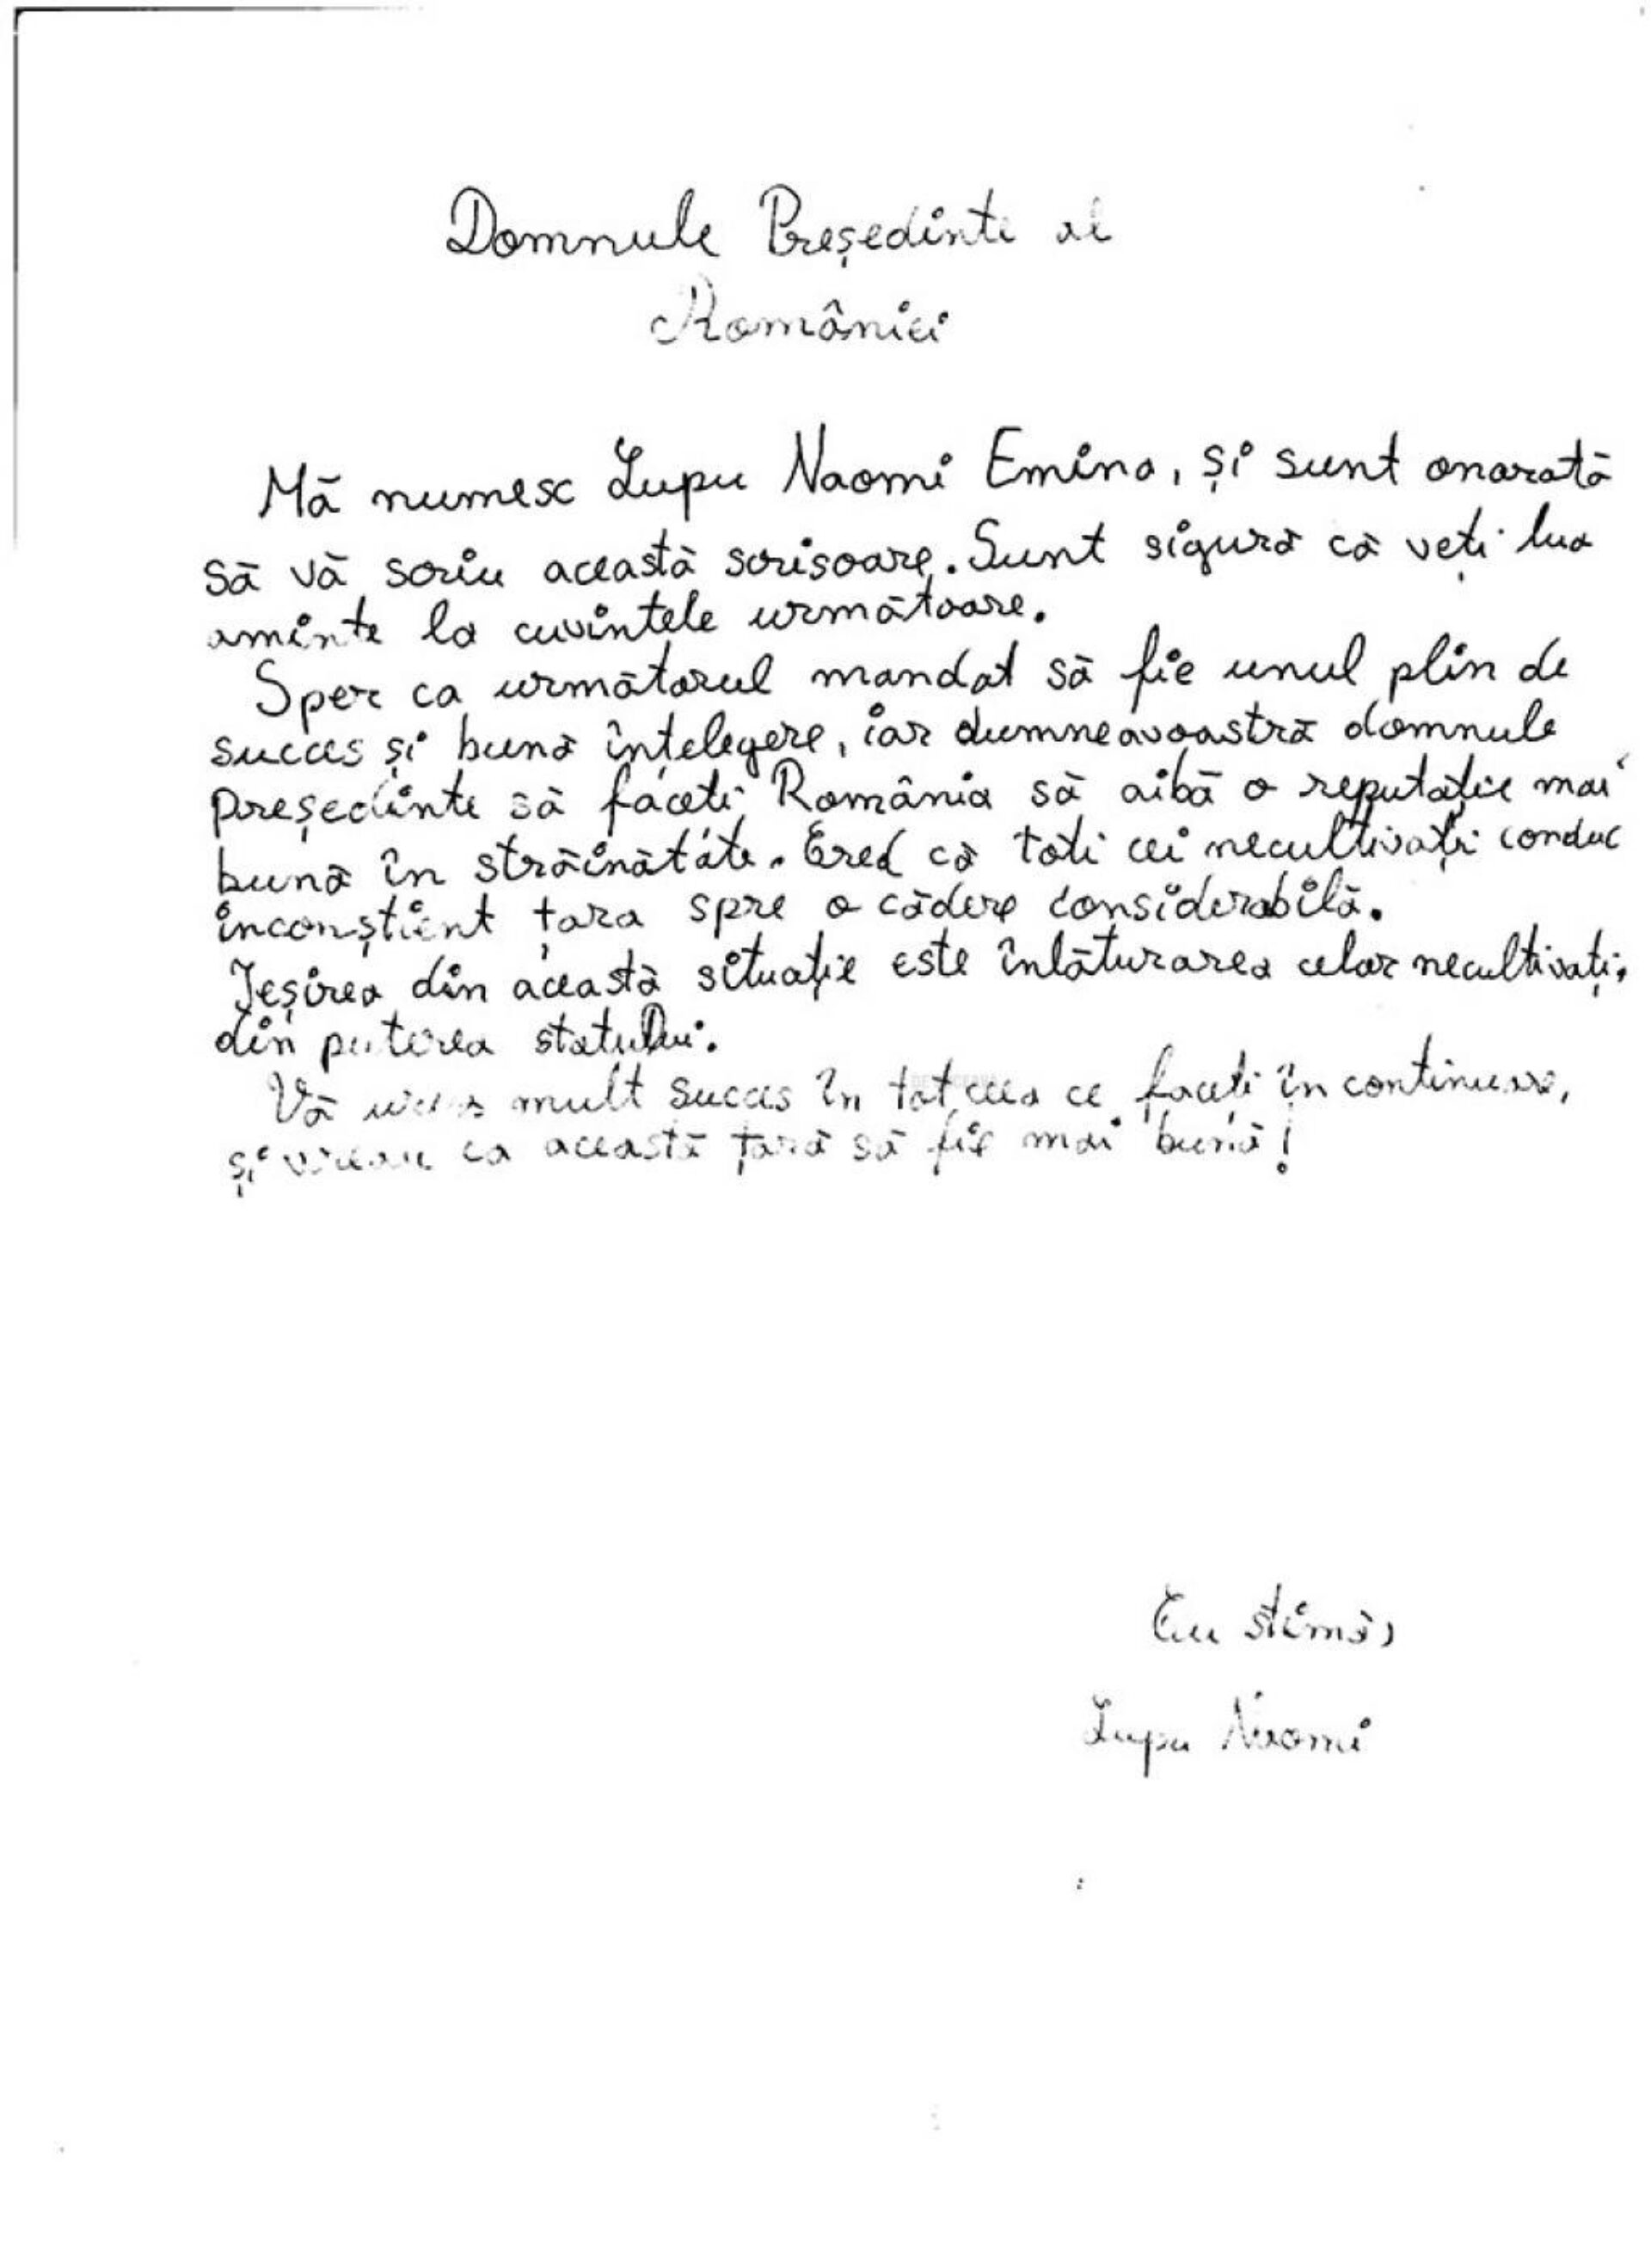 Domnule Președinte al
României
Mă numesc Lupu Naomi Emina, și sunt onorată
să vă scriu această scrisoare. Sunt sigură că veți lua
aminte la cuvintele următoare.
Sper ca următorul mandat să fie unul plin de
succes și bună înțelegere, iar dumneavoastră domnule
președinte să faceți România să aibă o reputație mai
bună în străinătate. Cred că toți cei necultivați conduc
inconștient țara spre o cădere considerabilă.
Ieșirea din această situație este înlăturarea celor necultivați,
din puterea statului.
Vă urez mult succes în tot ceea ce faceți în continuare,
și vreau ca această țară să fie mai bună!
Cu stimă,
Lupu Naomi